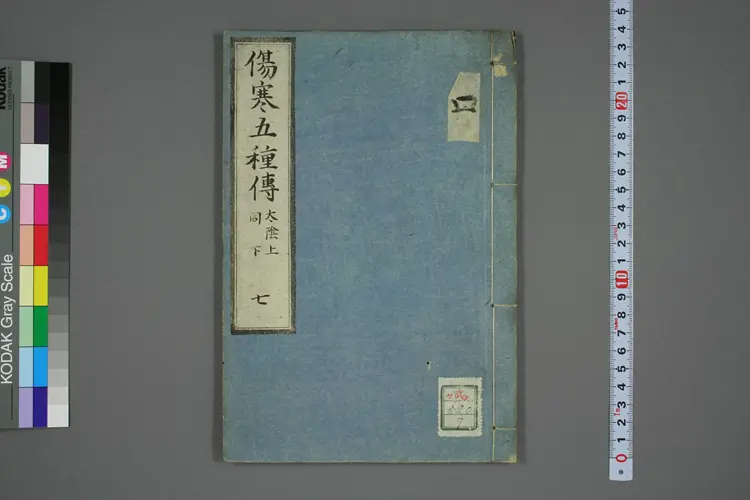 傷寒五種傳
太陰上
同下
七
KODAK Gray Scale
Kodak
C
Y
M
5
4
3
2
1
20
9
8
7
6
5
4
3
2
1
10
9
8
7
6
5
4
3
2
1
0